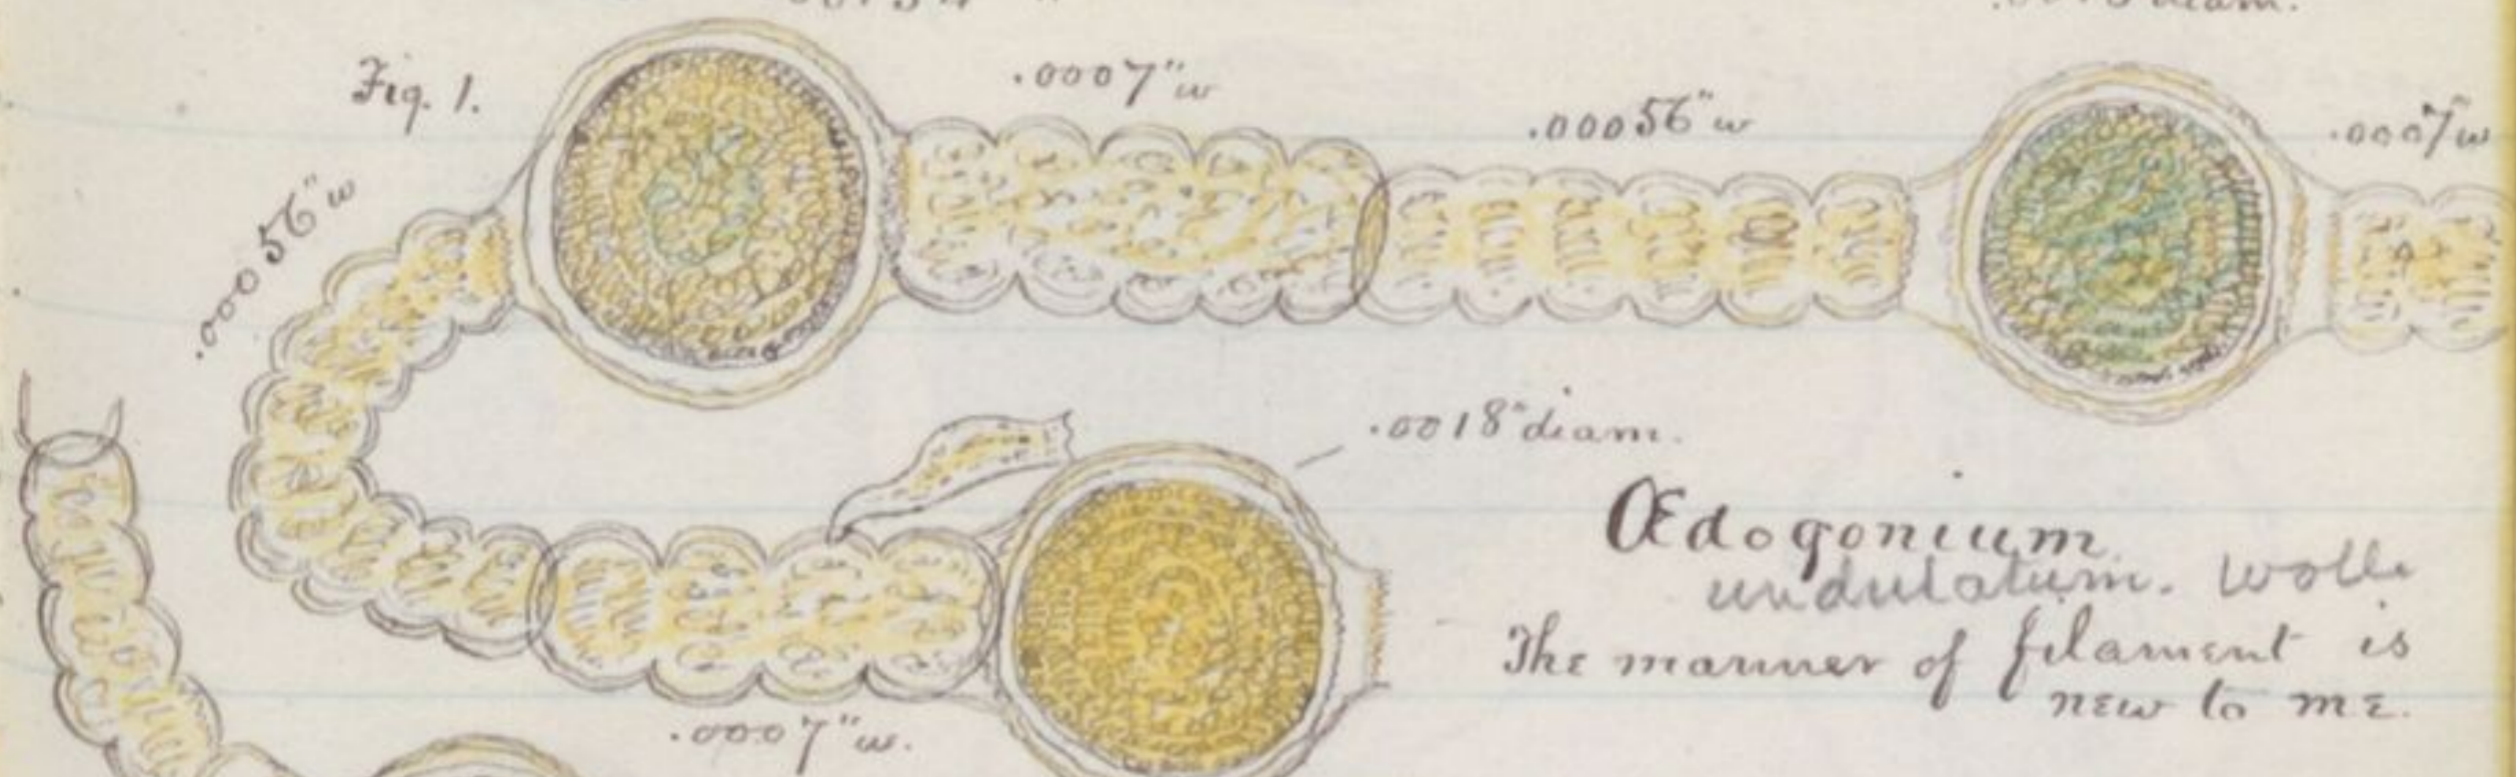 Fig. 1.
.0007"w
.00056"w
.0007"w
.00056"w
.0018"diam.
Œdogonium
undulatum. Wolle
The manner of filament is
new to me.
.0007"w.